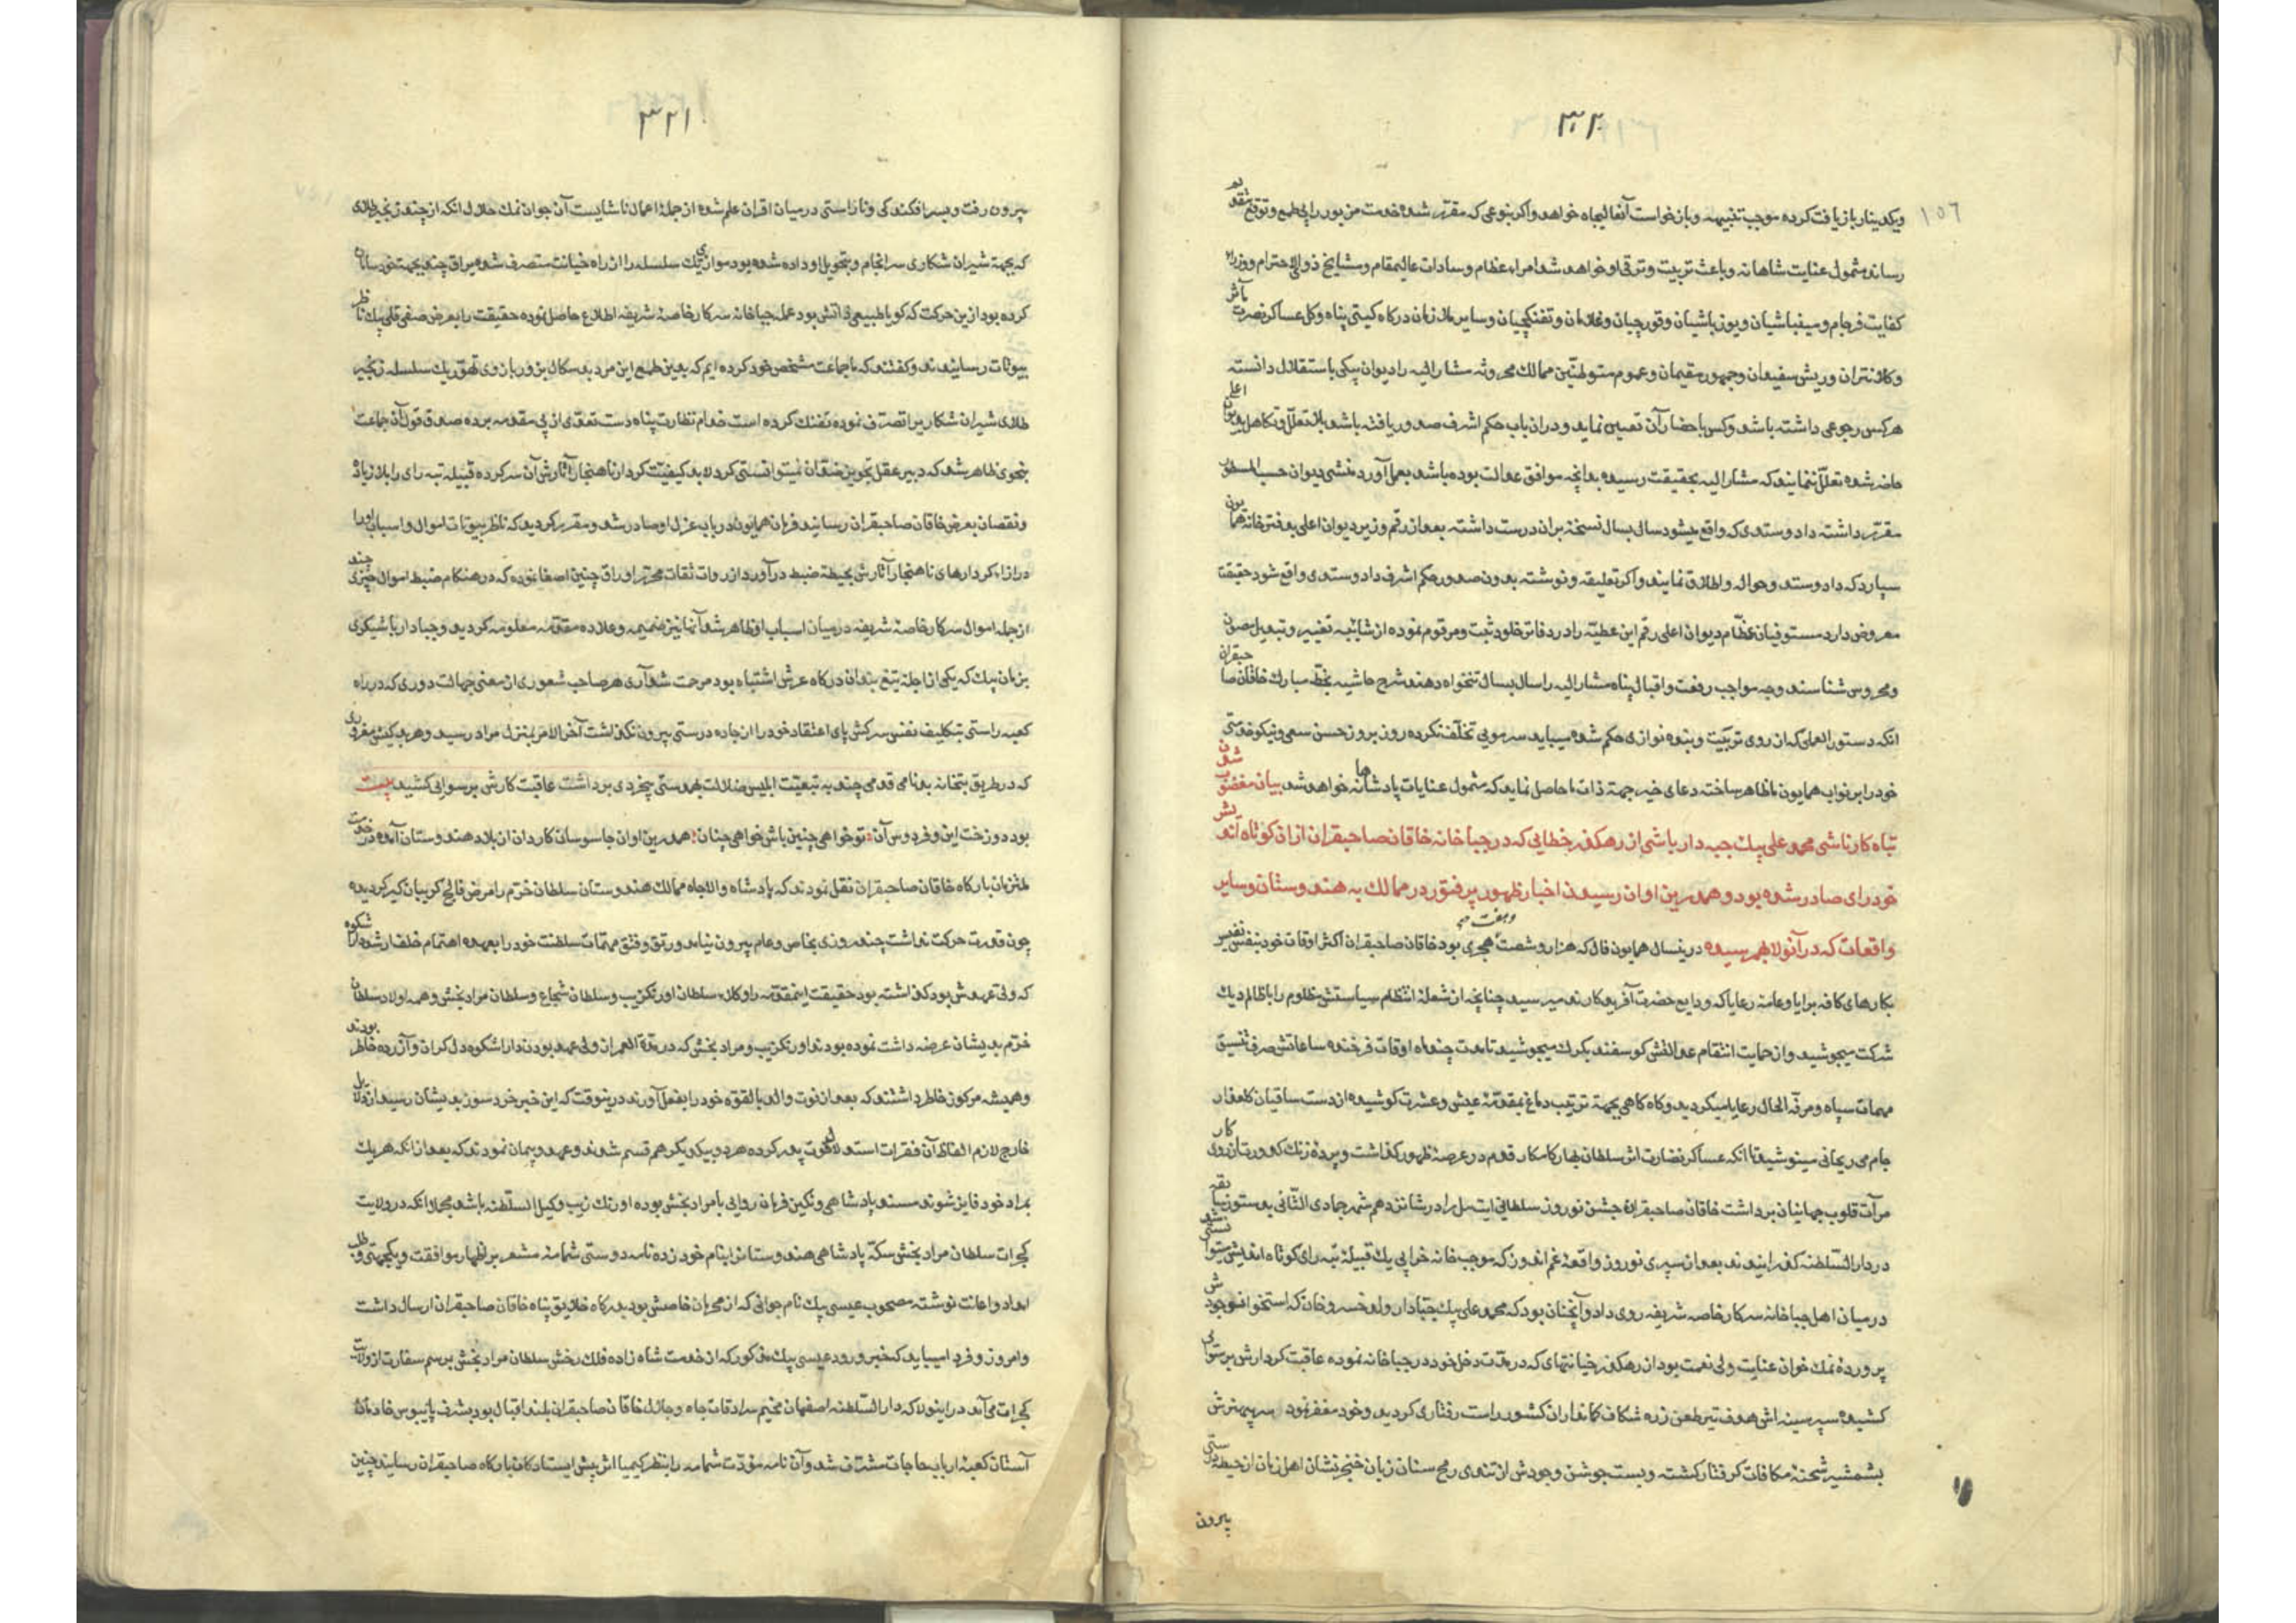 ۳۲۰
۱۵۶
ویکدینار بازیافت کرده موجب تنبیهه و بازخواست آنعالیجاه خواهد و اکر بنوعی که مقرر شده خدمت مزبور را بی طمع و توقع بتقدیم
رساند مشمول عنایت شاهانه و باعث تربیت و ترقی او خواهد شد امراء عظام و سادات عالیمقام و مشایخ ذوالاحترام و وزراء
کفایت فرجام و مینباشیان و یوزباشیان و قورچیان و غلامان و تفنکچیان و سایر ملازمان درکاه کیتی پناه و کل عساکر نصرت مآثر
و کلانتران و ریش سفیدان و جمهور مقیمان و عموم متوطنین ممالک محروسه مشار الیه را دیوان بیکی باستقلال دانسته
هرکس رجوعی داشته باشد و کس باحضار آن تعیین نماید و در ان باب حکم اشرف صدور یافته باشد بلا تعلل و تکاهل بدیوان اعلی
حاضر شده تعلل ننمایند که مشار الیه بحقیقت رسیده بدانچه موافق عدالت بوده باشد بعمل آورد منشی دیوان حسب المسطور
مقرر داشته داد و ستدی که واقع میشود سال بسال نسخه بران درست داشته بعد از رقم وزیر دیوان اعلی بدفترخانه همایون
سپارد که داد و ستد و حواله و اطلاق نمایند و اکر تعلیقه و نوشته بدون صدور حکم اشرف داد و ستدی واقع شود حقیقت
معروض دارد مستوفیان عظام دیوان اعلی رقم این عطیه را در دفاتر خلود ثبت و مرقوم نموده از شائبه تغییر و تبدیل مصون
و محروس شناسند وجه مواجب رفعت و اقبال پناه مشار الیه را سال بسال تنخواه دهند شرح حاشیه بخط مبارک خاقان صاحبقران
انکه دستور العملی که از روی تربیت و بنده نوازی حکم شده میباید سر مویی تخلف نکرده روز بروز حسن سعی و نیکو خدمتی
خود را بر نواب همایون ما ظاهر ساخته دعای خیر جهة ذات ما حاصل نماید که مشمول عنایات پادشاهانه خواهد شد بیان مغضوب شدن
تباه کار ناشی محمد علی بیک جبه دار باشی از رهکذر خطایی که در جباخانه خاقان صاحبقران ازان کوتاه اندیش
خودرای صادر شده بود و همدرین اوان رسیدن اخبار ظهور پر فتور در ممالک به هندوستان و سایر
واقعات که در آنولا بهم رسیده درینسال همایون فال که هزار و شصت و هفت هجری بود خاقان صاحبقران اکثر اوقات خود بنفس نفیس
بکارهای کافه برایا و عامه رعایا که ودایع حضرت آفریدکارند میرسید چنانچه از شعله انتظام سیاستش مظلوم را با ظالم دیک
شرکت میجوشید و از حمایت انتقام عدالتش کوسفند بکرک میجوشید تا مدت چند ماه اوقات فرخنده ساعاتش صرف تنسیق
مهمات سپاه و مرفه الحال رعایا میکردید و کاه کاهی بجهة ترتیب دماغ بمقدمه عیش و عشرت کوشیده از دست ساقیان کلعذار
جام می ریحانی مینوشید تا انکه عساکر نضارت اثر سلطان بهار کامکار قدم در عرصه ظهور کذاشت و پرده زنک کدورت از روی کار
مرآت قلوب جهانیان برداشت خاقان صاحبقران جشن نوروز سلطانی ایت ییل را در شانزدهم شهر جمادی الثانی بدستور سابقه
در دار السلطنه کذرانیدند بعد از سپری نوروز واقعه غم اندوز که موجب خانه خرابی یک قبیله تبه رای کوتاه اندیش میتوانستی شد
در میان اهل جباخانه سرکار خاصه شریفه روی داد و آنچنان بود که محمد علی بیک جبادار ولد خسرو خان که استخوان وجودش
پرورده نمک خوان عنایت ولی نعمت بود از رهکذر خیانتهای که در مدت دخل خود در جباخانه نموده عاقبت کردارش برسوایی
کشیده سپر سینه اش هدف تیر طعن زره شکاف کمانداران کشور راست رفتاری کردید و خود مغفر نمود سر پیمنرش
بشمشیر شحنه مکافات کرفتار کشته و بست جوشن وجودش از تندی رمح سنان زبان خنجر نشان اهل زمان از حیطه درستی
بیرون
۳۲۱
بیرون رفت و بسرافکندکی و ناراستی در میان اقران علم شده از جمله اعمال ناشایست آن جوان نمک حلال انکه از چند زنجیر طلای
که بجهة شیران شکاری سرانجام و بتحویل او داده شده بود موازی یک سلسله را از راه خیانت متصرف شده یراق چند بجهة خود سامان
کرده بود ازین حرکت که کویا طبیعی ذاتش بود عمله جباخانه سرکار خاصه شریفه اطلاع حاصل نموده حقیقت را بعرض صفی قلی بیک ناظر
بیوتات رسانیدند و کفتند که ما جماعت مشخص خود کرده ایم که بعین طمع این مرد بد سکال بزور بازوی تهور یک سلسله زنجیر
طلای شیران شکار یرا تصرف نموده تفنک کرده است خدام نظارت پناه دست تعدی از پی مقدمه برده صدق قول آن جماعت
بنحوی ظاهر شد که دبیر عقل تجویز خفقان نمیتوانستی کرد لابد کیفیت کردار ناهنجار آثارش آن سرکرده قبیله تبه رای را بلا زیاد
و نقصان بعرض خاقان صاحبقران رسانید فرمان همایون در باب عزل او صادر شد و مقرر کردید که ناظر بیوتات اموال و اسباب اورا
در ازاء کردارهای ناهنجار آثارش بحیطه ضبط درآورد از روات ثقات محرر اوراق چنین اصغا نموده که در هنکام ضبط اموال چیزی چند
از جمله اموال سرکار خاصه شریفه در میان اسباب او ظاهر شد آنها نیز ضمیمه و علاوه مقدمه معلومه کردید و جبادار باشیکری
بزمان بیک که یکی از اجله تیغ بندان درکاه عرش اشتباه بود مرحمت شد آری هر صاحب شعوری از معنی جهالت دوری که در راه
کعبه راستی بتکلیف نفس سرکش پای اعتقاد خود را از جاده درستی بیرون نکذاشت آخر الامر بمنزل مراد رسید و هر بدکیش مغروری
که در طریق بتخانه بدنامی قدمی چند به تبعیت ابلیس ضلالت بهمدستی بیخردی برداشت عاقبت کارش برسوایی کشید بیت
بود دوزخت این و فردوس آن تو خواهی چنین باش خواهی چنان همدرین اوان جاسوسان کاردان از بلاد هندوستان آمده در خدمت
ملتزمان بارکاه خاقان صاحبقران نقل نمودند که پادشاه والاجاه ممالک هندوستان سلطان خرم را مرض فالج کریبان کیر کردیده
چون قدرت حرکت نداشت چند روزی بخاص و عام بیرون نیامد و رتق و فتق مهمات سلطنت خود را بعهده اهتمام خلف ارشد دارا شکوه
که ولی عهدش بود کذاشته بود حقیقت اینمقدمه را وکلاء سلطان اورنکزیب و سلطان شجاع و سلطان مراد بخش و همه اولاد سلطان
خرم بدیشان عرضه داشت نموده بودند اورنکزیب و مراد بخش که در مدة العمر از ولی عهد بودن دارا شکوه دل کران و آزرده خاطر بودند
و همیشه مرکوز خاطر داشتند که بعد از فوت والد بالقوه خود را بفعل آورند درینوقت که این خبر خرد سوز بدیشان رسید از دلایل
خارج لازم الفاظ آن فقرات استدلال فوت پدر کرده هردو بیکدیکر هم قسم شدند و عهد و پیمان نمودند که بعد از انکه هریک
بمراد خود فایز شوند مسند پادشاهی و نکین فرمان روایی با مراد بخش بوده اورنک زیب وکیل السلطنه باشد مجملا انکه در ولایت
کجرات سلطان مراد بخش سکه پادشاهی هندوستانرا بنام خود زده نامه دوستی شمامه مشعر بر اظهار موافقت و یکجهتی و طلب
امداد و اعانت نوشته مصحوب عیسی بیک نام جوانی که از محرمان خاصش بود بدرکاه خلایق پناه خاقان صاحبقران ارسال داشت
و امروز و فردا میباید که خبر ورود عیسی بیک مذکور که از خدمت شاه زاده فلک رخش سلطان مراد بخش برسم سفارت از ولایت
کجرات می آمد در اینولا که دار السلطنه اصفهان مخیم سرادقات جاه و جلال خاقان صاحبقران بلند اقبال بود بشرف پایبوس خادمان
آستان کعبه ارباب حاجات مشرف شد و آن نامه مودت شمامه را بنظر کیمیا اثر پیش ایستادکان بارکاه صاحبقران رسانید چنین